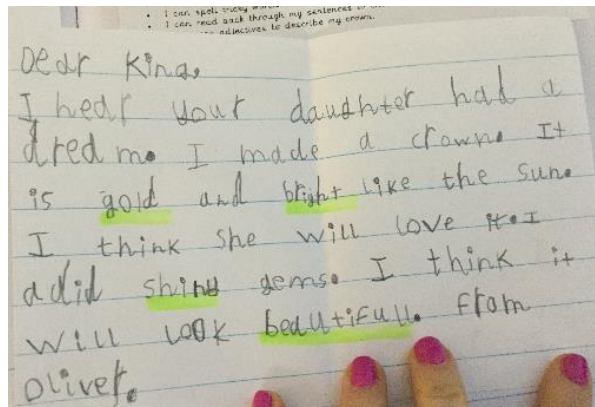 I can spell tricky
I can read back through my sentences to
adjectives to describe my crown.
Dear King,
I hear your daughter had a
dream. I made a crown. It
is gold and bright like the sun.
I think she will love it. I
adid shiny gems. I think it
will look beautifull. From
Oliver.